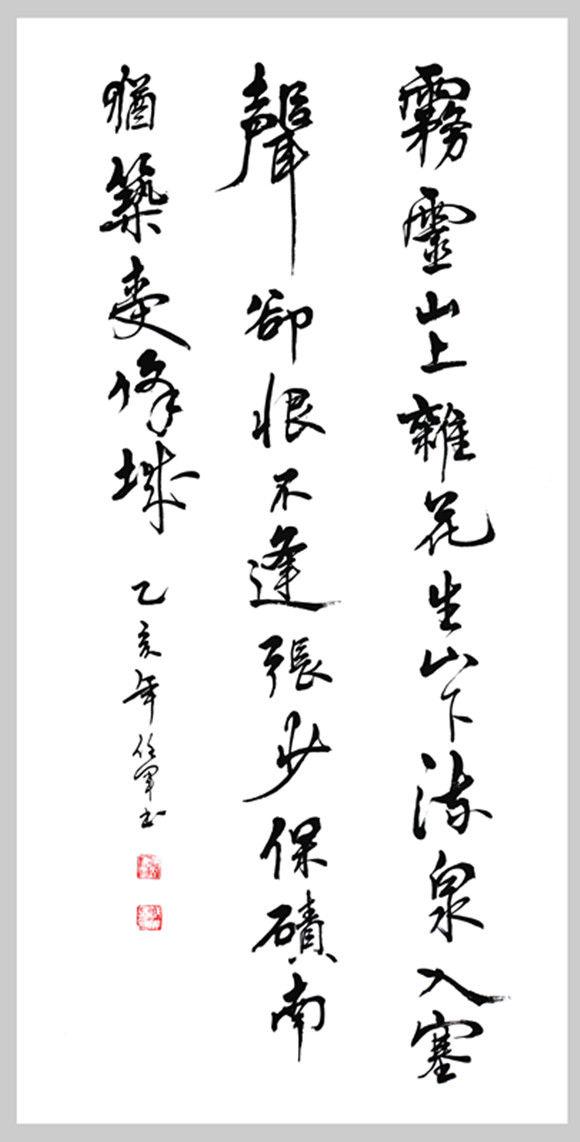 霧靈山上雜花生山下流泉入塞
聲卻恨不逢張少保磧南
猶築受降城 乙亥年任軍書